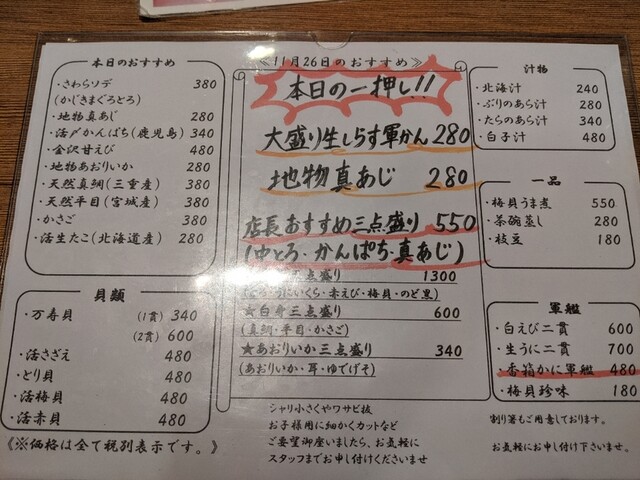 本日のおすすめ
・さわらソデ 380
(かじきまぐろとろ)
・地物真あじ 280
・活〆かんぱち(鹿児島) 340
・金沢甘えび 480
・地物あおりいか 280
・天然真鯛(三重産) 380
・天然平目(宮城産) 380
・かさご 380
・活生たこ(北海道産) 280
貝類
・万寿貝 (1貫) 340
(2貫) 600
・活さざえ 480
・とり貝 480
・活梅貝 480
・活赤貝 480
《※価格は全て税別表示です。》
《11月26日のおすすめ》
本日の一押し!!
大盛り生しらす軍かん 280
地物真あじ 280
店長おすすめ三点盛り 550
(中とろ・かんぱち・真あじ)
点盛り 1300
うにいくら・赤えび・梅貝・のど黒)
★白身三点盛り 600
(真鯛・平目・かさご)
★あおりいか三点盛り 340
(あおりいか・耳・ゆでげそ)
シャリ小さくやワサビ抜
お子様用に細かくカットなど
ご要望御座いましたら、お気軽に
スタッフまでお申し付けくださいませ
汁物
・北海汁 240
・ぶりのあら汁 280
・たらのあら汁 340
・白子汁 480
一品
・梅貝うま煮 550
・茶碗蒸し 280
・枝豆 180
軍艦
・白えび二貫 600
・生うに二貫 700
・香箱かに軍艦 480
・梅貝珍味 180
割り箸もご用意しております。
お気軽にお申し付け下さいませ。